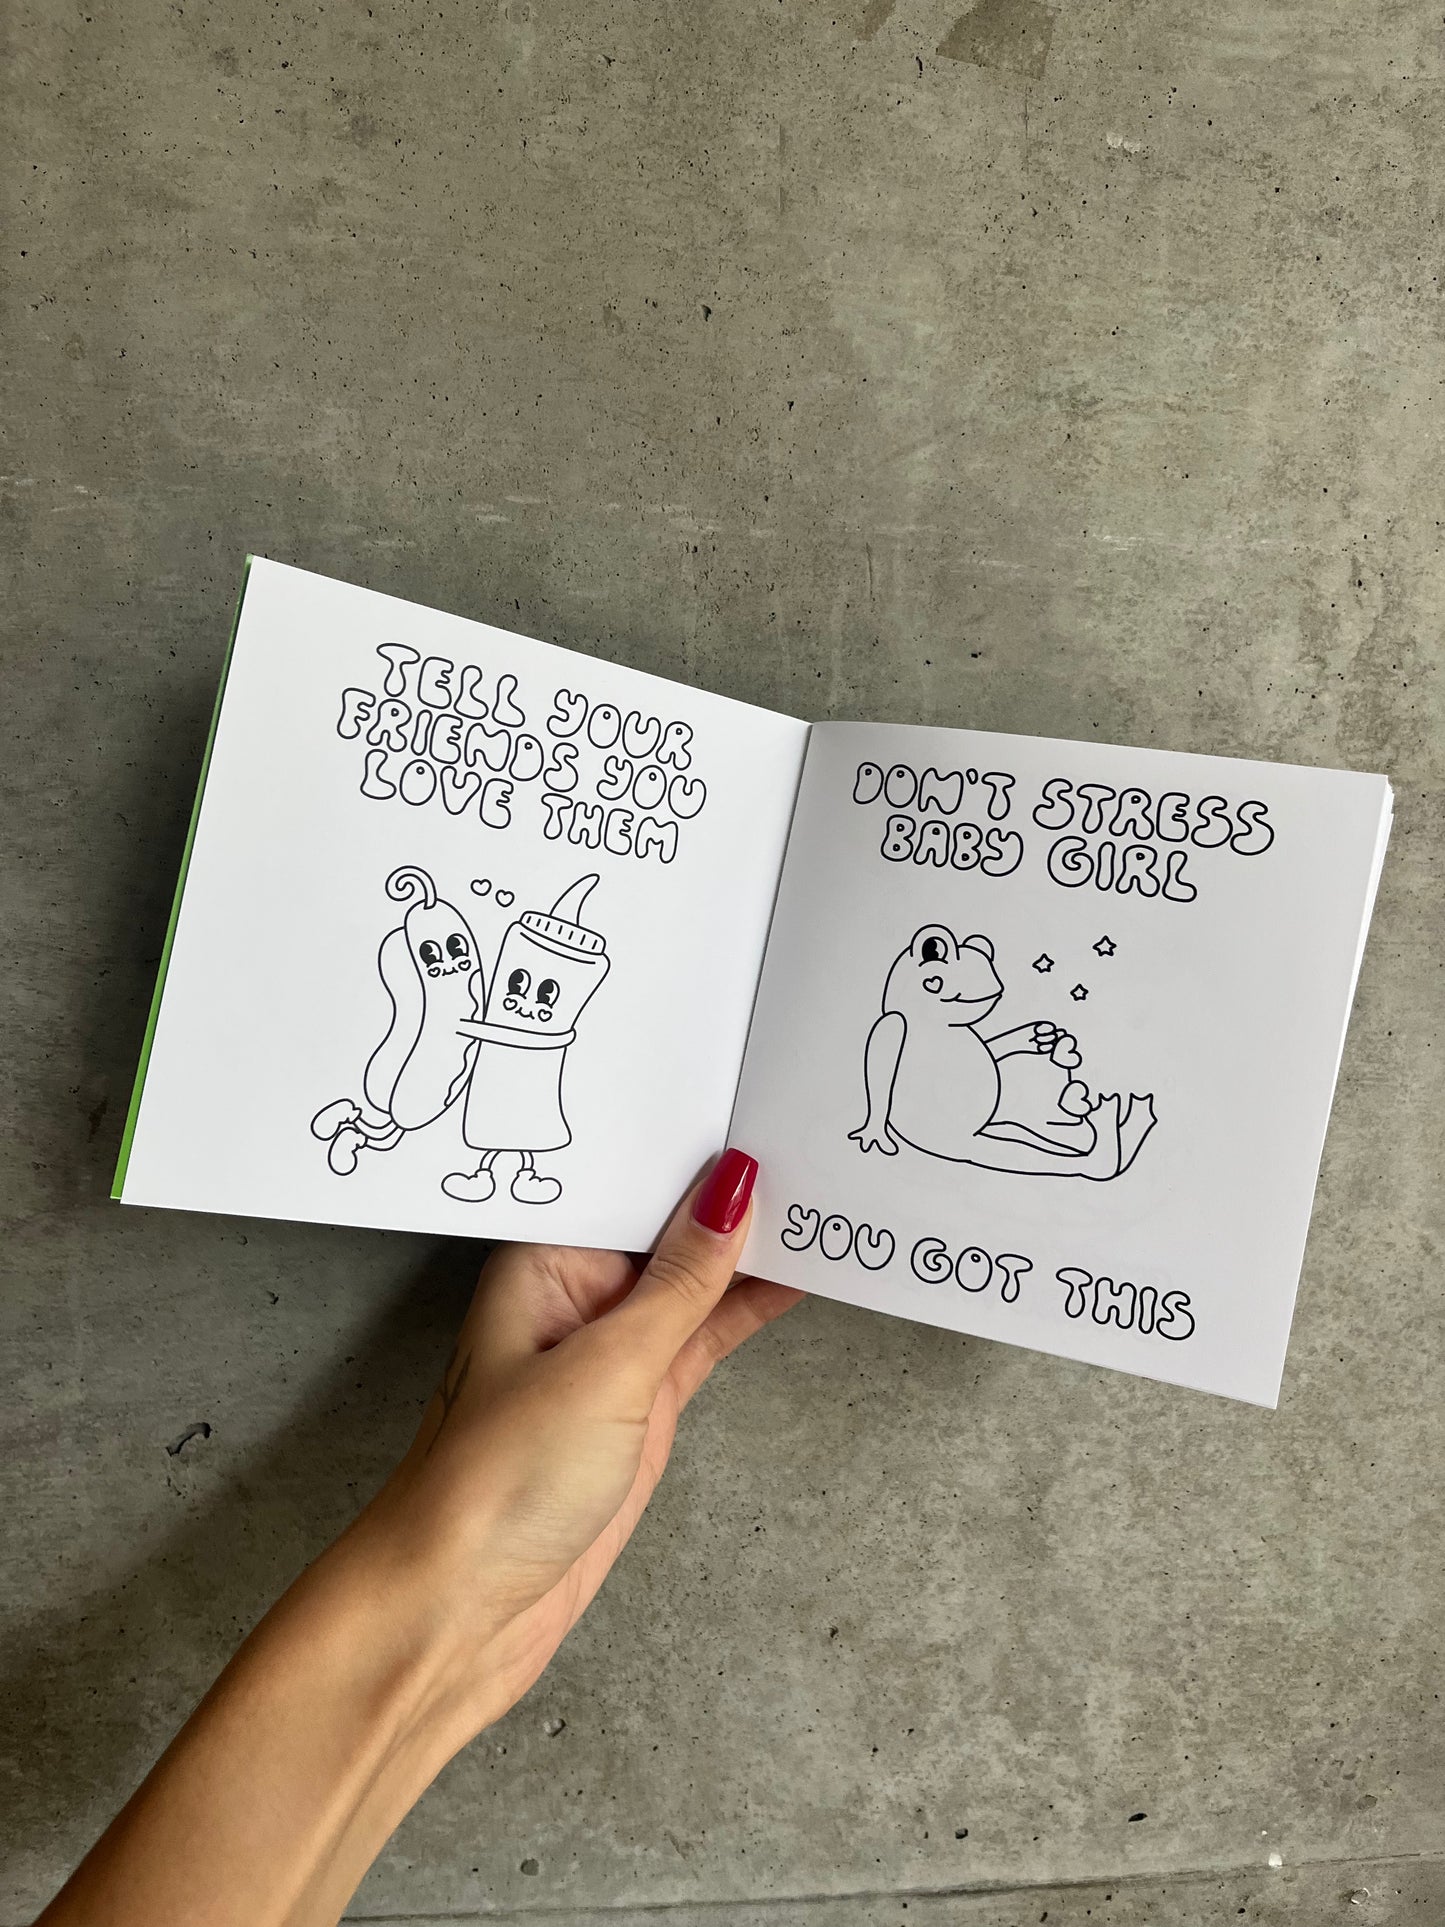 TELL YOUR
FRIENDS YOU
LOVE THEM
DON'T STRESS
BABY GIRL
YOU GOT THIS